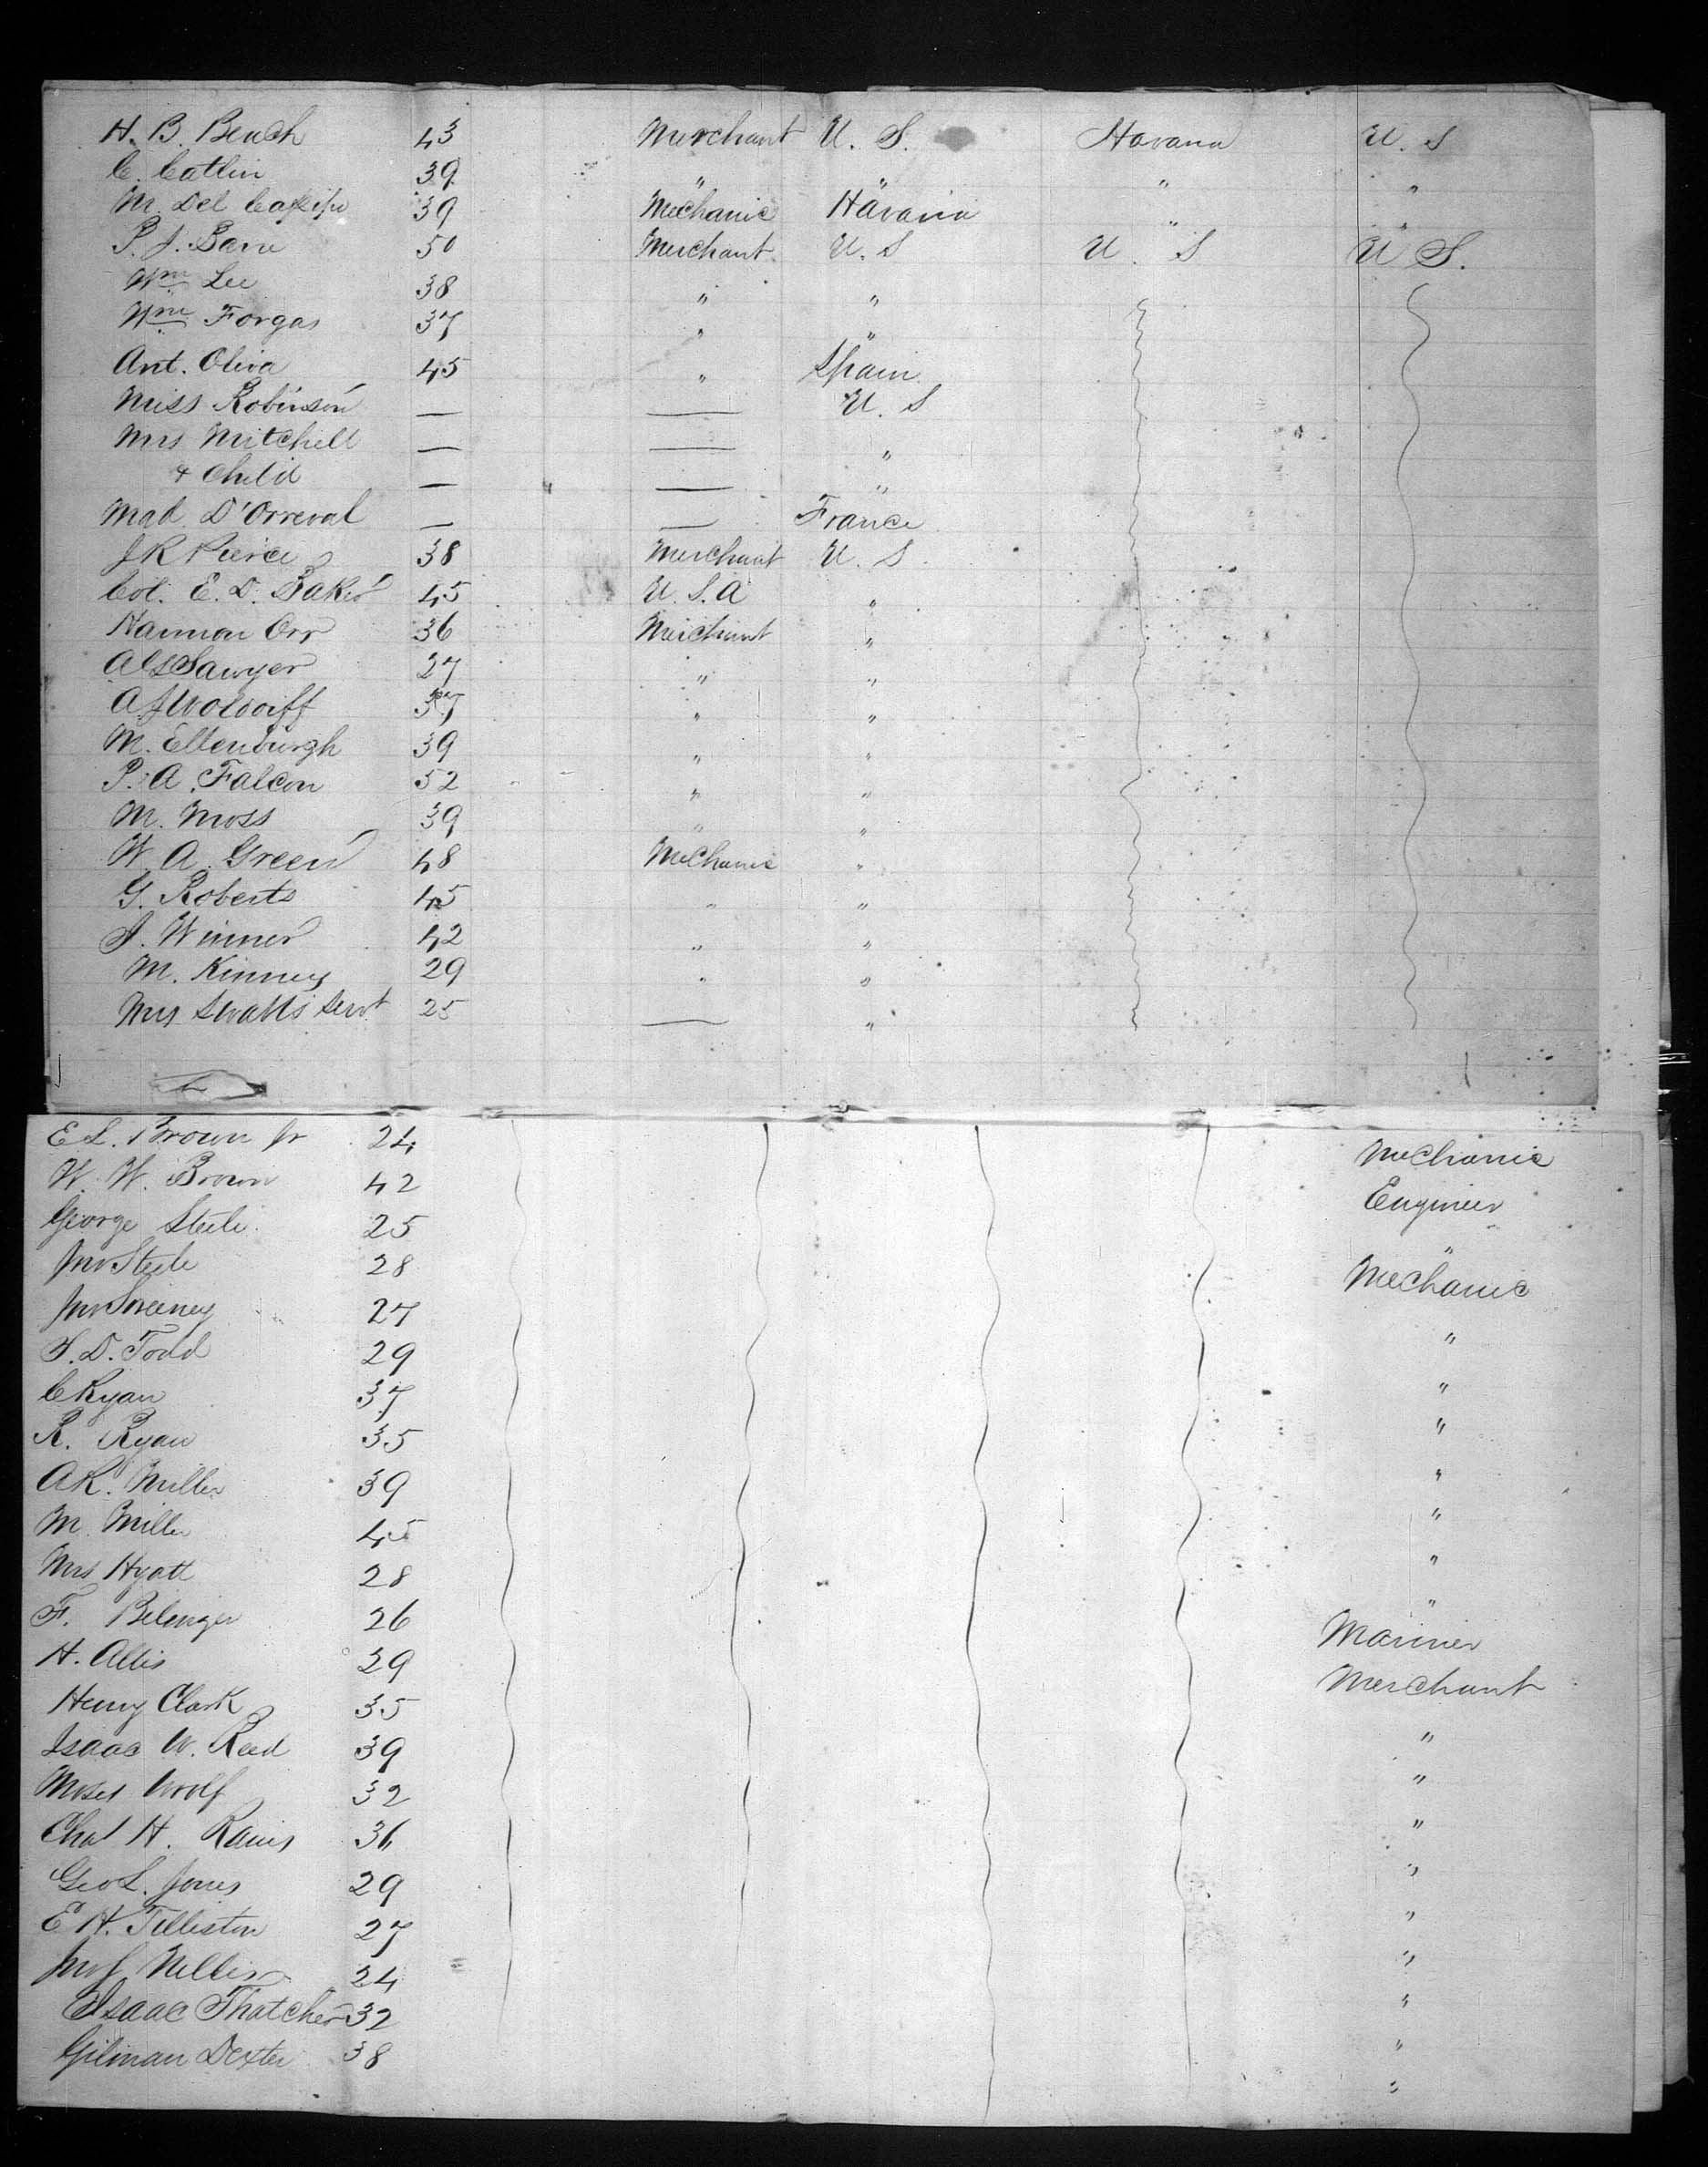 H. B. Beach 43 Merchant U. S. Havana U. S
C. Catlin 39 " " " "
M. Del 39 Mechanic Havana " "
P. J. 50 Merchant U. S U. S U S.
Wm Lee 38 " "
Wm Forgas 37 " "
Ant. Oliva 45 " Spain
Miss Robinson — — U. S
Mrs Mitchell — — "
& Child — — "
Mad. D'Orreval — — France
J R Pierce 38 Merchant U. S.
Col. E. D. Baker 45 U. S. A "
Harmon Orr 36 Merchant "
Sawyer 27 " "
37 " "
M. Ellenburgh 39 " "
P. A. Falcon 52 " "
M. Moss 39 " "
W. A. Green 48 Mechanic "
G. Roberts 45 " "
J. Winner 42 " "
M. Kinney 29 " "
Mrs Servt 25 — "
E L. Brown Jr 24 Mechanic
W. W. Brown 42 Engineer
George Steele 25 "
Jno Steele 28 Mechanic
Jno Sweeney 27 "
S. D. Todd 29 "
C Ryan 37 "
R. Ryan 35 "
A K. Miller 39 "
M. Miller 45 "
Mrs Hyatt 28 "
F. 26 Mariner
H. Allis 29 Merchant
Henry Clark 35 "
Isaac W. Reed 39 "
Moses Wolf 32 "
Chas H. 36 "
Geo L. Jones 29 "
E H. Tilliston 27 "
24 "
Isaac Thatcher 32 "
Gilman Dexter 38 "